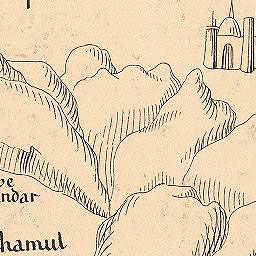 ve
ndar
hamul